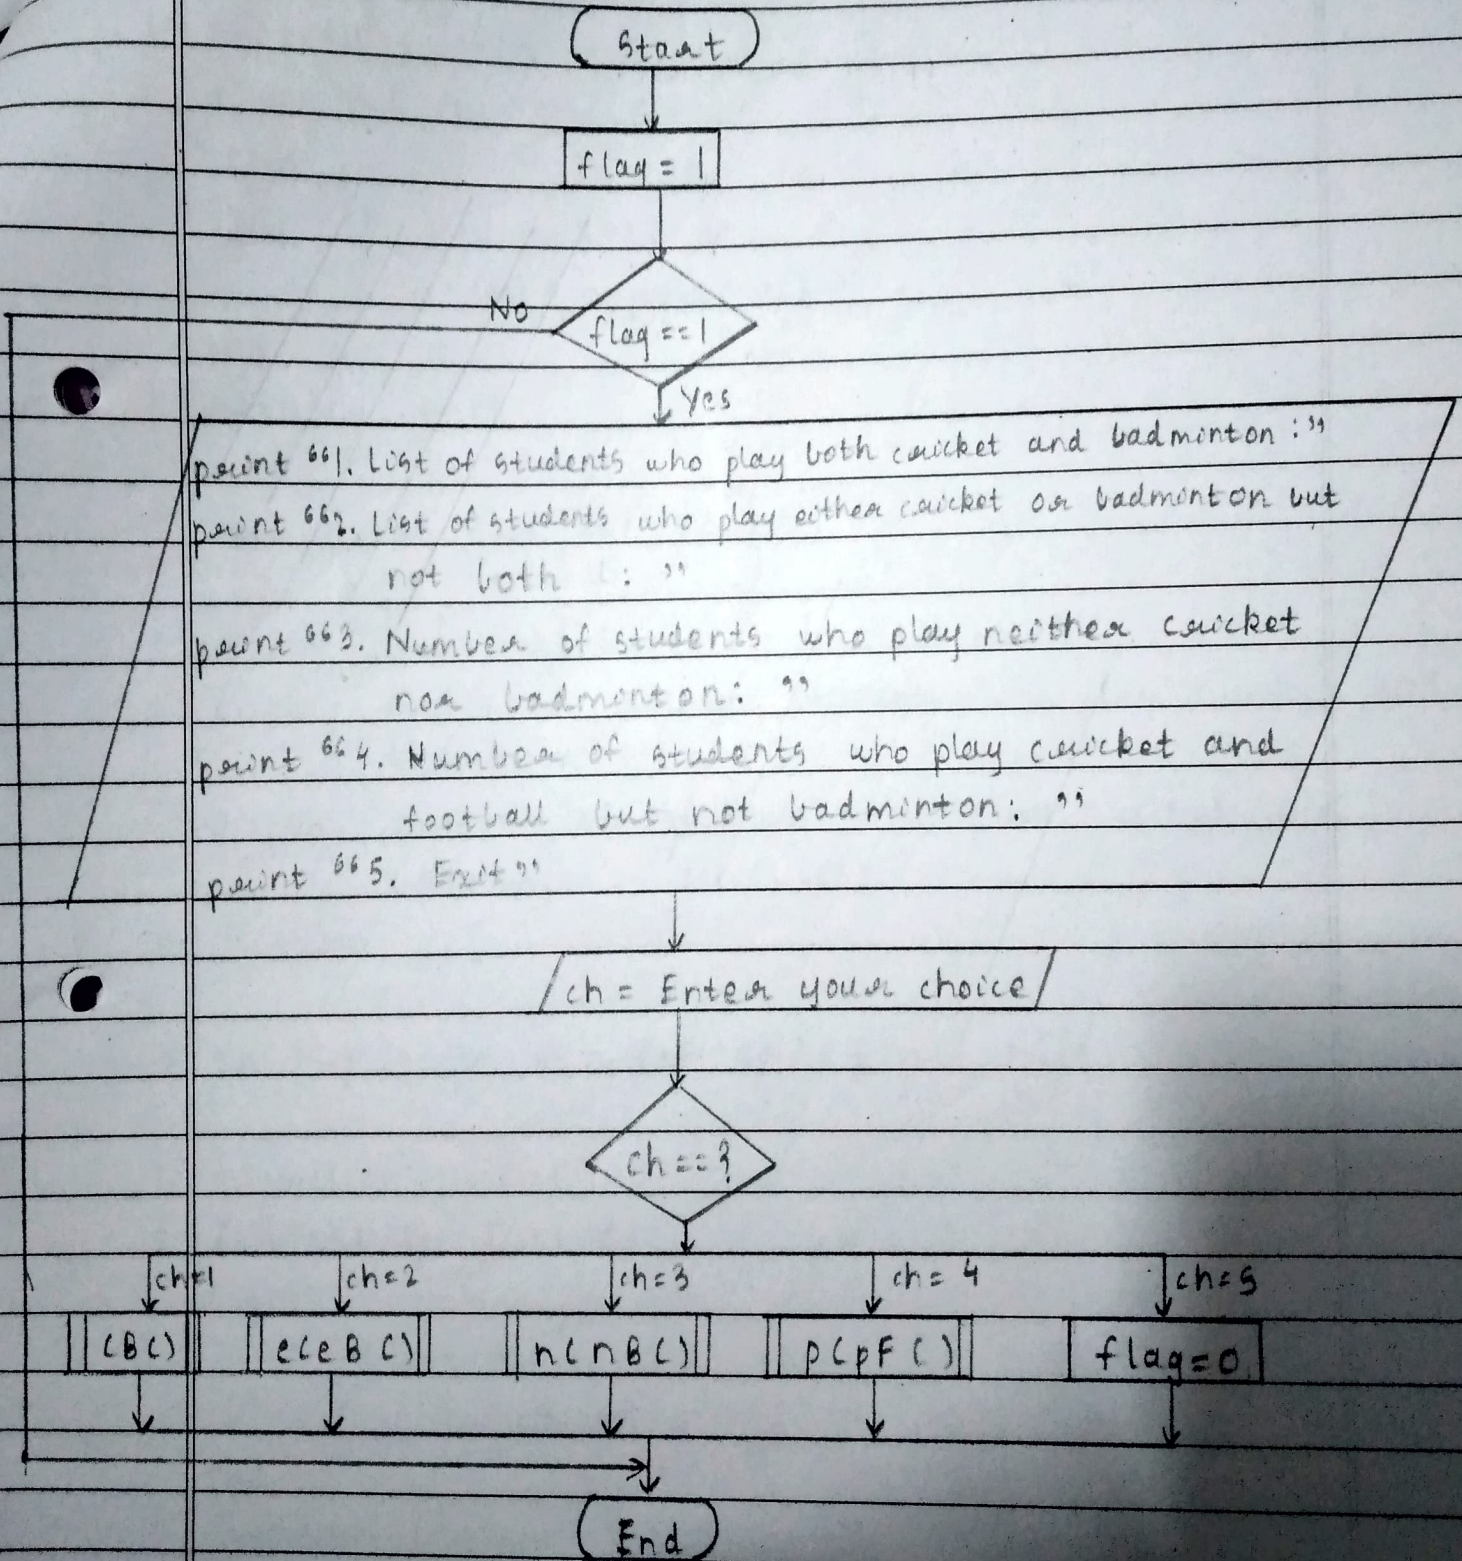 Start
flag = 1
No
flag == 1
Yes
print “1. List of students who play both cricket and badminton :”
print “2. List of students who play either cricket or badminton but
not both : ”
print “3. Number of students who play neither cricket
nor badminton: ”
print “4. Number of students who play cricket and
football but not badminton: ”
print “5. Exit”
ch = Enter your choice
ch==?
ch=1 ch=2 ch=3 ch=4 ch=5
CBC) eCeBC) nCnBC) pCpFC) flag=0
End